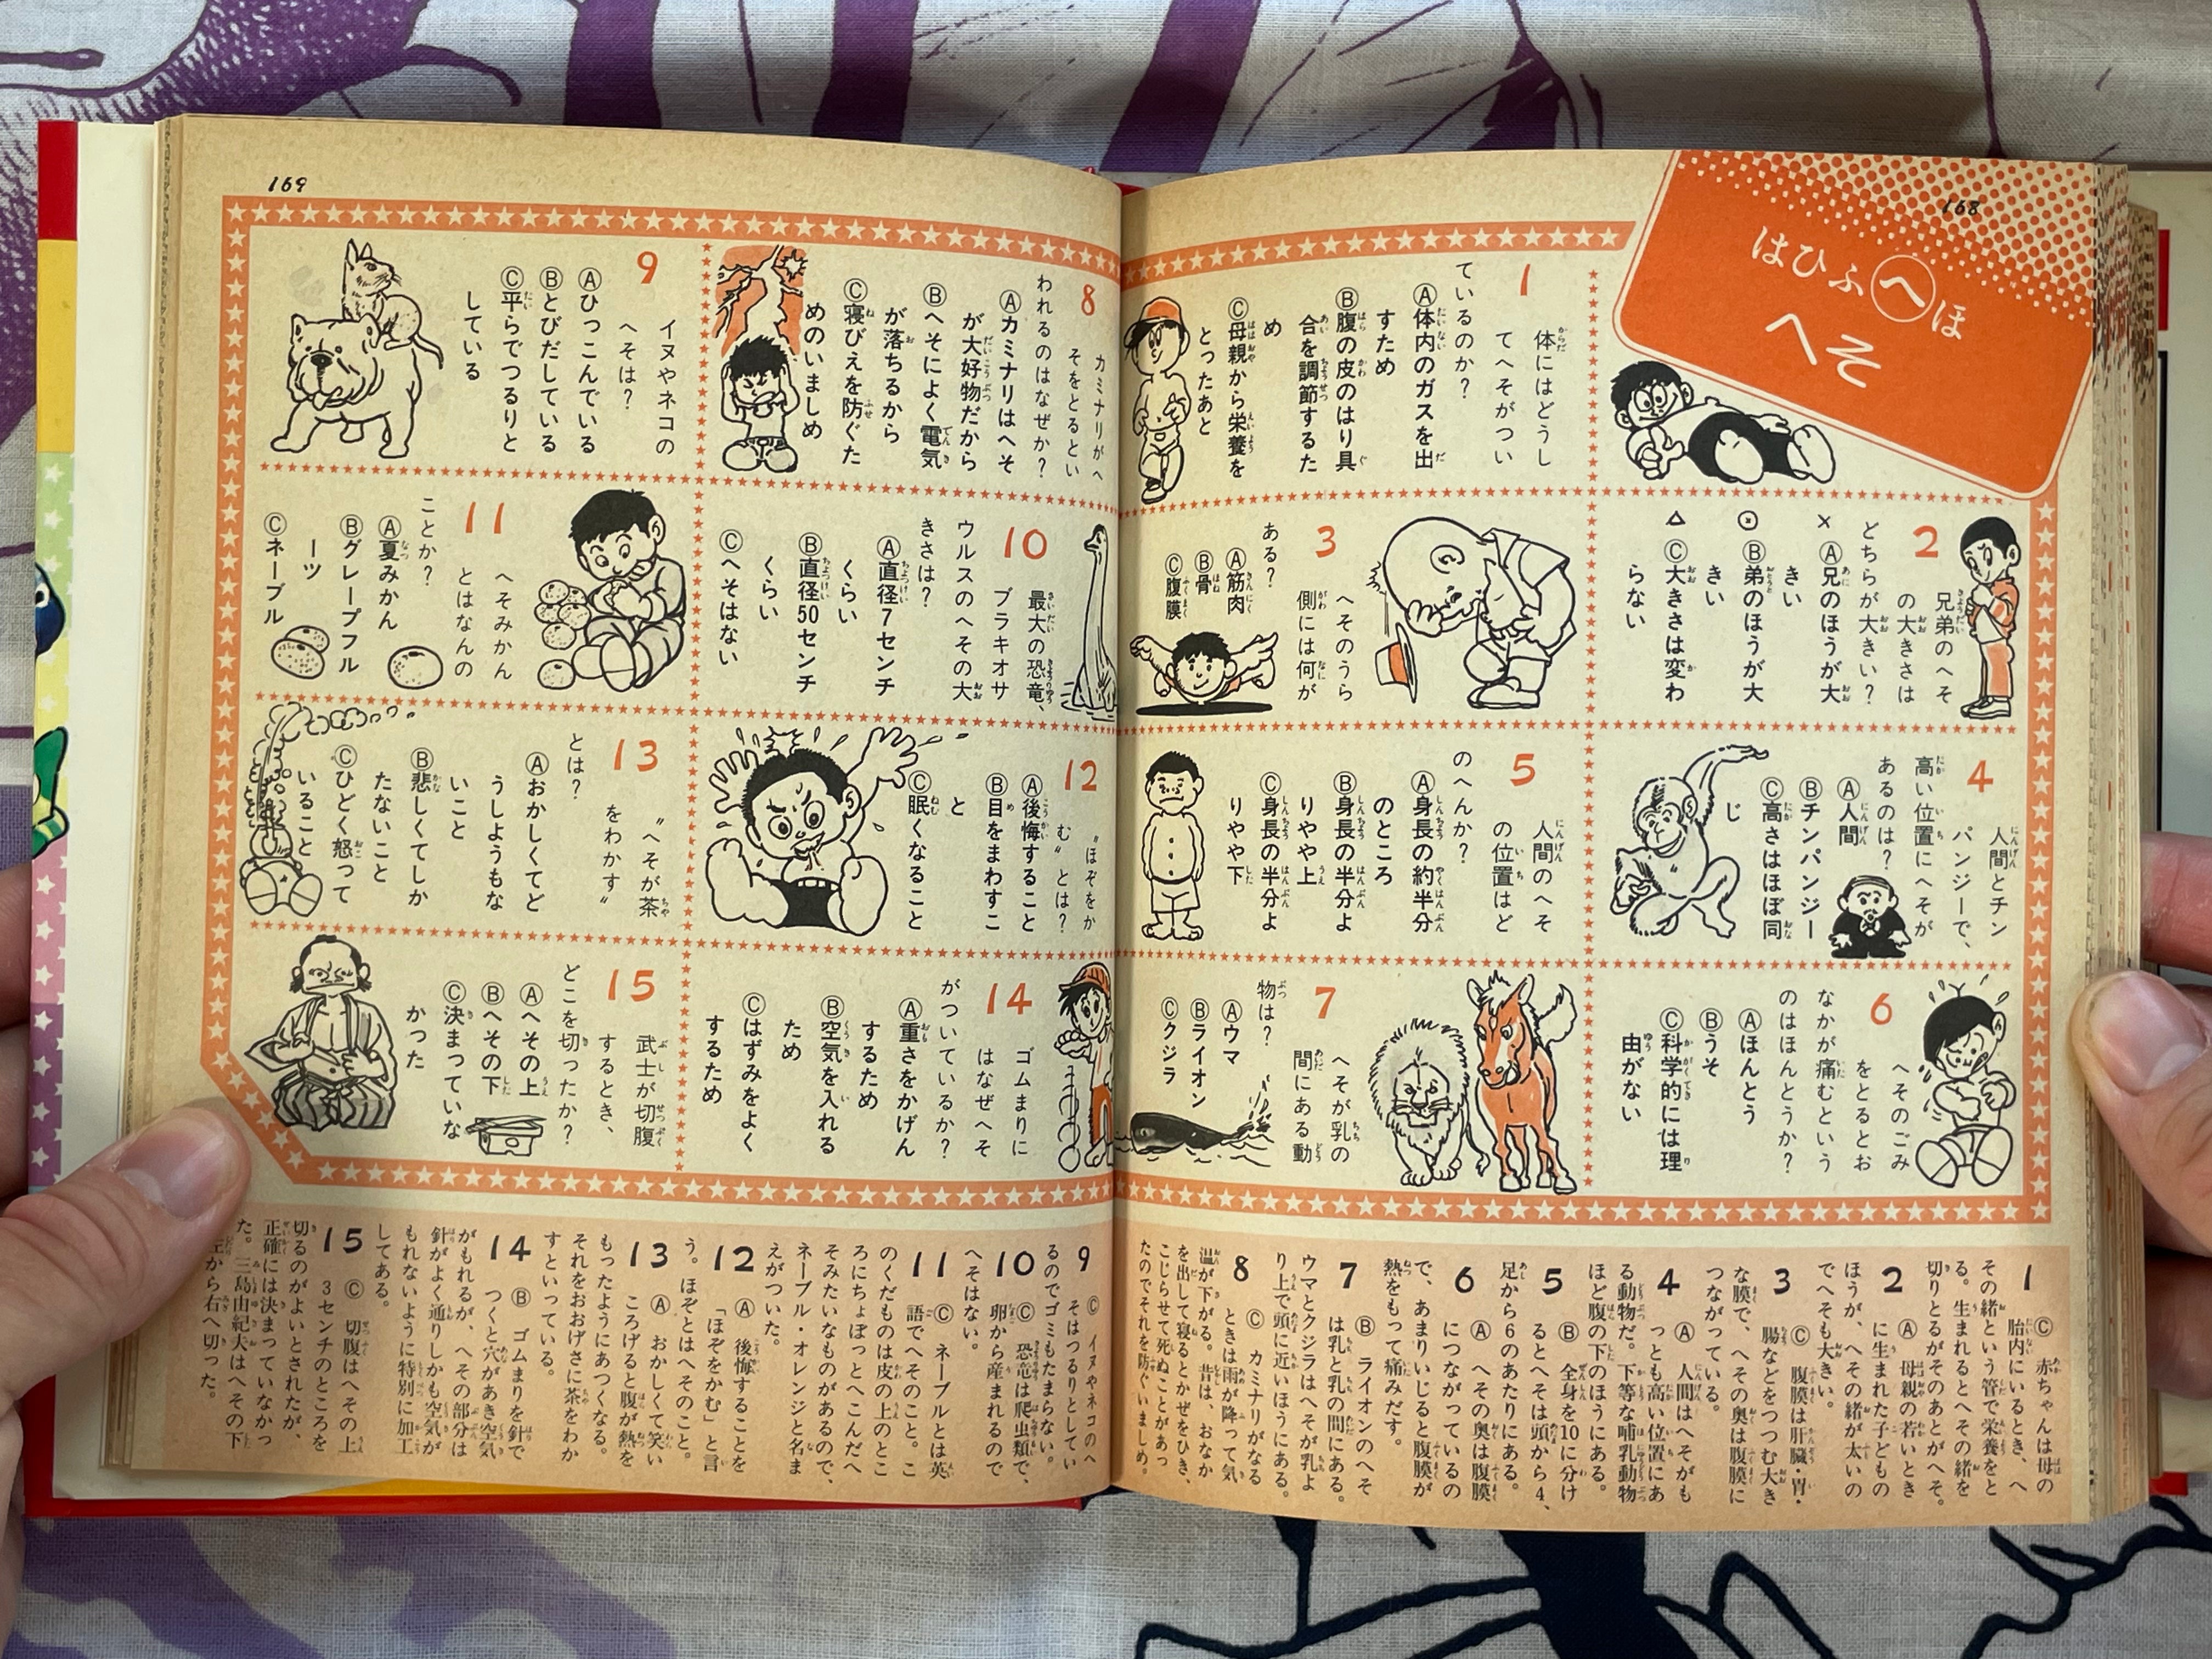 168
はひふへほ
へそ
1
体にはどうし
てへそがつい
ているのか？
Ⓐ体内のガスを出
すため
Ⓑ腹の皮のはり具
合を調節するた
め
Ⓒ母親から栄養を
とったあと
2
兄弟のへそ
の大きさは
どちらが大きい？
×Ⓐ兄のほうが大
きい
⊙Ⓑ弟のほうが大
きい
△Ⓒ大きさは変わ
らない
3
へそのうら
側には何が
ある？
Ⓐ筋肉
Ⓑ骨
Ⓒ腹膜
4
人間とチン
パンジーで、
高い位置にへそが
あるのは？
Ⓐ人間
Ⓑチンパンジー
Ⓒ高さはほぼ同
じ
5
人間のへそ
の位置はど
のへんか？
Ⓐ身長の約半分
のところ
Ⓑ身長の半分よ
りやや上
Ⓒ身長の半分よ
りやや下
6
へそのごみ
をとるとお
なかが痛むという
のはほんとうか？
Ⓐほんとう
Ⓑうそ
Ⓒ科学的には理
由がない
7
へそが乳の
間にある動
物は？
Ⓐウマ
Ⓑライオン
Ⓒクジラ
1 Ⓒ 赤ちゃんは母の
胎内にいるとき、へ
その緒という管で栄養をと
る。生まれるとへその緒を
切りとるがそのあとがへそ。
2 Ⓐ 母親の若いとき
に生まれた子どもの
ほうが、へその緒が太いの
でへそも大きい。
3 Ⓒ 腹膜は肝臓・胃・
腸などをつつむ大き
な膜で、へその奥は腹膜に
つながっている。
4 Ⓐ 人間はへそがも
っとも高い位置にあ
る動物だ。下等な哺乳動物
ほど腹の下のほうにある。
5 Ⓑ 全身を10に分け
るとへそは頭から4、
足から6のあたりにある。
6 Ⓐ へその奥は腹膜
につながっているの
で、あまりいじると腹膜が
熱をもって痛みだす。
7 Ⓑ ライオンのへそ
は乳と乳の間にある。
ウマとクジラはへそが乳よ
り上で頭に近いほうにある。
8 Ⓒ カミナリがなる
ときは雨が降って気
温が下がる。昔は、おなか
を出して寝るとかぜをひき、
こじらせて死ぬことがあっ
たのでそれを防ぐいましめ。
169
8
カミナリがへ
そをとるとい
われるのはなぜか？
Ⓐカミナリはへそ
が大好物だから
Ⓑへそによく電気
が落ちるから
Ⓒ寝びえを防ぐた
めのいましめ
9
イヌやネコの
へそは？
Ⓐひっこんでいる
Ⓑとびだしている
Ⓒ平らでつるりと
している
10
最大の恐竜、
ブラキオサ
ウルスのへその大
きさは？
Ⓐ直径7センチ
くらい
Ⓑ直径50センチ
くらい
Ⓒへそはない
11
へそみかん
とはなんの
ことか？
Ⓐ夏みかん
Ⓑグレープフル
ーツ
Ⓒネーブル
12
〝ほぞをか
む〟とは？
Ⓐ後悔すること
Ⓑ目をまわすこ
と
Ⓒ眠くなること
13
〝へそが茶
をわかす〟
とは？
Ⓐおかしくてど
うしようもな
いこと
Ⓑ悲しくてしか
たないこと
Ⓒひどく怒って
いること
14
ゴムまりに
はなぜへそ
がついているか？
Ⓐ重さをかげん
するため
Ⓑ空気を入れる
ため
Ⓒはずみをよく
するため
15
武士が切腹
するとき、
どこを切ったか？
Ⓐへその上
Ⓑへその下
Ⓒ決まっていな
かった
9 Ⓒ イヌやネコのへ
そはつるりとしてい
るのでゴミもたまらない。
10 Ⓒ 恐竜は爬虫類で、
卵から産まれるので
へそはない。
11 Ⓒ ネーブルとは英
語でへそのこと。こ
のくだものは皮の上のとこ
ろにちょぽっとへこんだへ
そみたいなものがあるので、
ネーブル・オレンジと名ま
えがついた。
12 Ⓐ 後悔することを
「ほぞをかむ」と言
う。ほぞとはへそのこと。
13 Ⓐ おかしくて笑い
ころげると腹が熱を
もったようにあつくなる。
それをおおげさに茶をわか
すといっている。
14 Ⓑ ゴムまりを針で
つくと穴があき空気
がもれるが、へその部分は
針がよく通りしかも空気が
もれないように特別に加工
してある。
15 Ⓒ 切腹はへその上
3センチのところを
切るのがよいとされたが、
正確には決まっていなかっ
た。三島由紀夫はへその下
左から右へ切った。